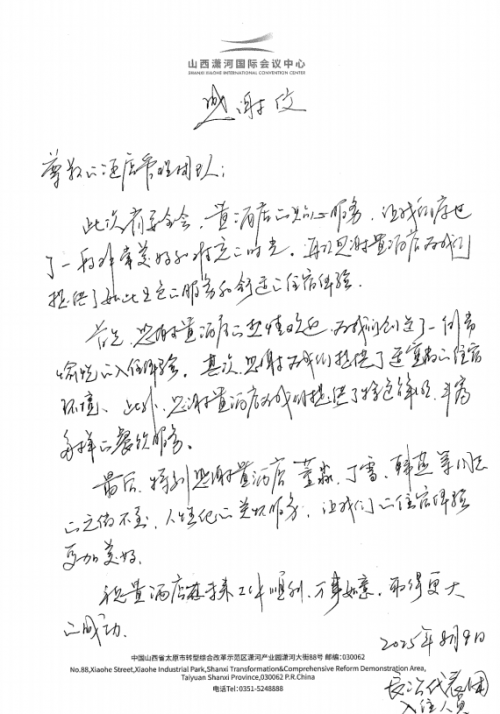 山西潇河国际会议中心
SHANXI XIAOHE INTERNATIONAL CONVENTION CENTER
感谢信
尊敬的酒店管理团队：
此次省委全会，贵酒店的贴心服务，让我们度过
了一段非常美好和难忘的时光，再次感谢贵酒店为我们
提供了如此出色的服务和舒适的住宿体验。
首先，感谢贵酒店的热情款待，为我们创造了一个非常
愉悦的入住体验。其次，感谢为我们提供了这里的住宿
环境、此外，感谢贵酒店为我们提供了特色鲜明、丰富
多样的餐饮服务。
最后，特别感谢贵酒店 董淼、丁雪、韩燕等同志
的无微不至、人性化的关怀服务，让我们的住宿体验
更加美好。
祝贵酒店在未来工作顺利、万事如意，取得更大
的成功。
2025年8月9日
长治代表团
入住人员
中国山西省太原市转型综合改革示范区潇河产业园潇河大街88号 邮编:030062
No.88,Xiaohe Street,Xiaohe Industrial Park,Shanxi Transformation&Comprehensive Reform Demonstration Area,
Taiyuan Shanxi Province,030062 P.R.China
电话Tel:0351-5248888